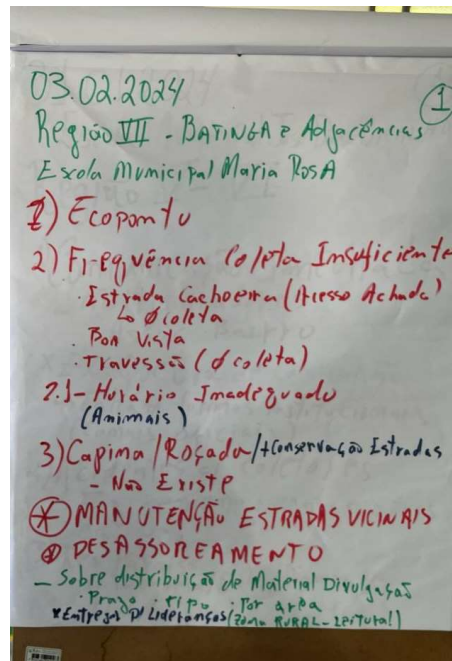 03.02.2024
1
Região VII - BATINGA e Adjacências
Escola Municipal Maria RosA
1) Ecoponto
2) Frequência Coleta Insuficiente
· Estrada Cachoeira (Acesso Achada)
↳ Ø coleta
· Boa Vista
· Travessão (Ø coleta)
2.1- Horário Inadequado
(Animais)
3) Capina / Roçada / + Conservação Estradas
- Não Existe
* MANUTENÇÃO ESTRADAS VICINAIS
DESASSOREAMENTO
- Sobre distribuição de Material Divulgação
· Prazo · Tipo · Por área
* Entregas p/ Lideranças (Zona RURAL - Leitura!)